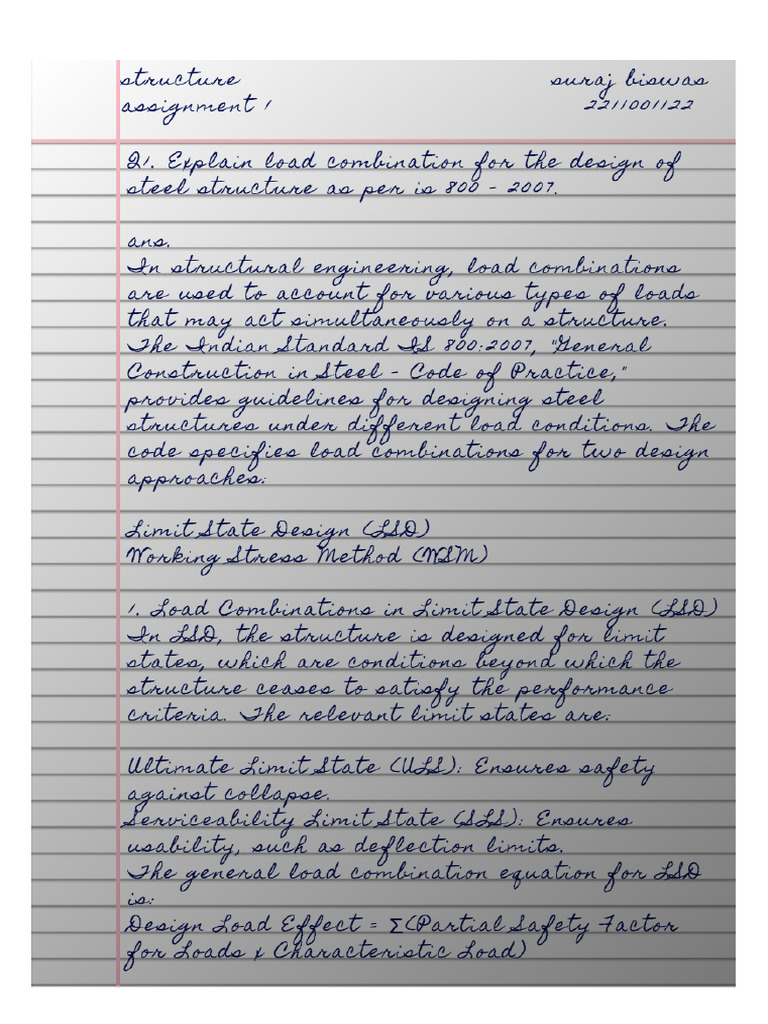 structure
suraj biswas
assignment 1
2211001122
Q1. Explain load combination for the design of
steel structure as per is 800 - 2007.
ans.
In structural engineering, load combinations
are used to account for various types of loads
that may act simultaneously on a structure.
The Indian Standard IS 800:2007, "General
Construction in Steel - Code of Practice,"
provides guidelines for designing steel
structures under different load conditions. The
code specifies load combinations for two design
approaches:
Limit State Design (LSD)
Working Stress Method (WSM)
1. Load Combinations in Limit State Design (LSD)
In LSD, the structure is designed for limit
states, which are conditions beyond which the
structure ceases to satisfy the performance
criteria. The relevant limit states are:
Ultimate Limit State (ULS): Ensures safety
against collapse.
Serviceability Limit State (SLS): Ensures
usability, such as deflection limits.
The general load combination equation for LSD
is:
Design Load Effect = ∑(Partial Safety Factor
for Loads x Characteristic Load)